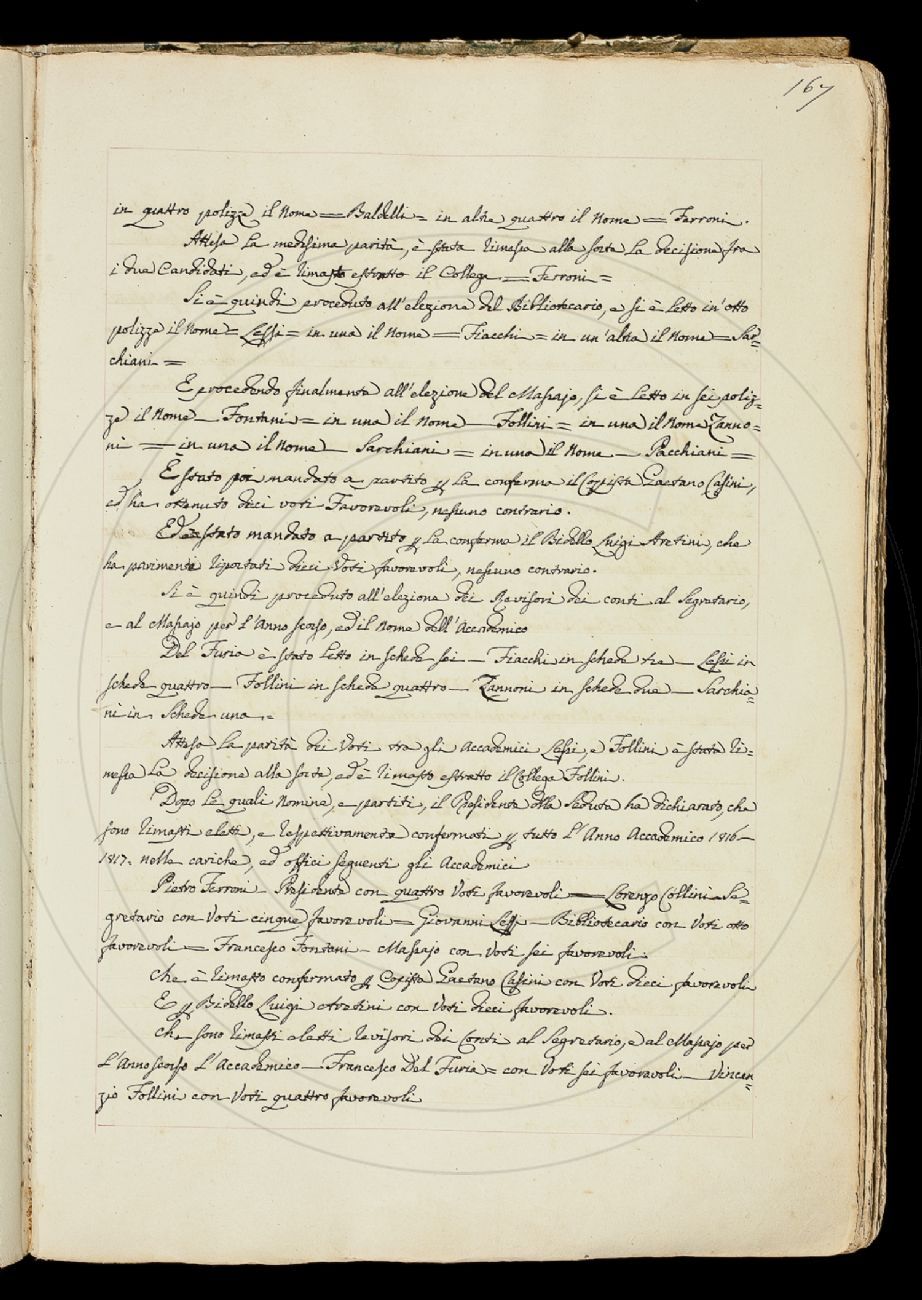 167
in quattro polizze il Nome = Baldelli = in altre quattro il Nome = Ferroni.
Attesa La medesima parità, è stata rimessa alla sorte La decisione fra
i due Candidati, ed è rimasto estratto il Collega = Ferroni =
Si è quindi proceduto all'elezione del Bibliotecario, e si è Letto in'otto
polizze il Nome = Lessi = in una il Nome = Fiacchi = in un'altra il Nome = Sar=
chiani =
E procedendo finalmente all'elezione del Massajo, si è Letto in sei poliz=
ze il Nome = Fontani = in una il Nome = Follini = in una il Nome Zanno=
ni = in una il Nome = Sarchiani = in una il Nome = Pacchiani =
È stato poi mandato a partito p La conferma il Copista Gaetano Casini,
ed ha ottenuto dieci voti Favorevoli, nessuno contrario.
Ed è stato mandato a partito p La conferma il Bidello Luigi Aretini, che
ha parimente riportati dieci Voti favorevoli, nessuno contrario.
Si è quindi proceduto all'elezione dei Revisori dei conti al Segretario,
e al Massajo per L'Anno scorso, ed il Nome dell'Accademico
Del Furia è stato Letto in schede sei = Fiacchi in schede tre = Lessi in
schede quattro = Follini in schede quattro = Zannoni in schede due = Sarchia=
ni in Schede una =
Attesa La parità dei Voti tra gli Accademici Lessi, e Follini è stata ri=
messa La decisione alla sorte, ed è rimasto estratto il Collega Follini.
Dopo Le quali Nomine, e partiti, il Presidente della Seduta ha dichiarato, che
sono rimasti eletti, e respettivamente confermati p tutto L'Anno Accademico 1816=
1817. nelle cariche, ed offici seguenti gli Accademici
Pietro Ferroni Presidente con quattro Voti favorevoli = Lorenzo Collini Se=
gretario con Voti cinque favorevoli = Giovanni Lessi = Bibliotecario con Voti otto
favorevoli = Francesco Fontani = Massajo con Voti sei favorevoli.
Che è rimasto confermato p Copista Gaetano Casini con Voti dieci favorevoli
E p Bidello Luigi Aretini con Voti dieci favorevoli.
Che sono rimasti eletti revisori dei Conti al Segretario, e al Massajo per
L'Anno scorso L'Accademico = Francesco Del Furia = con Voti sei favorevoli = Vincen=
zio Follini con Voti quattro favorevoli